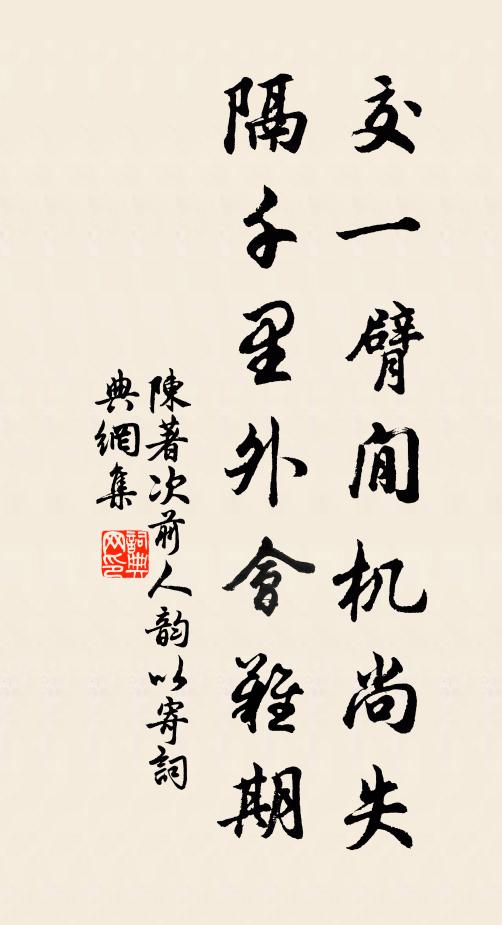 交一臂间机尚失
隔千里外會難期
陳著次前人韵以寄詞
典網集
詞典网印